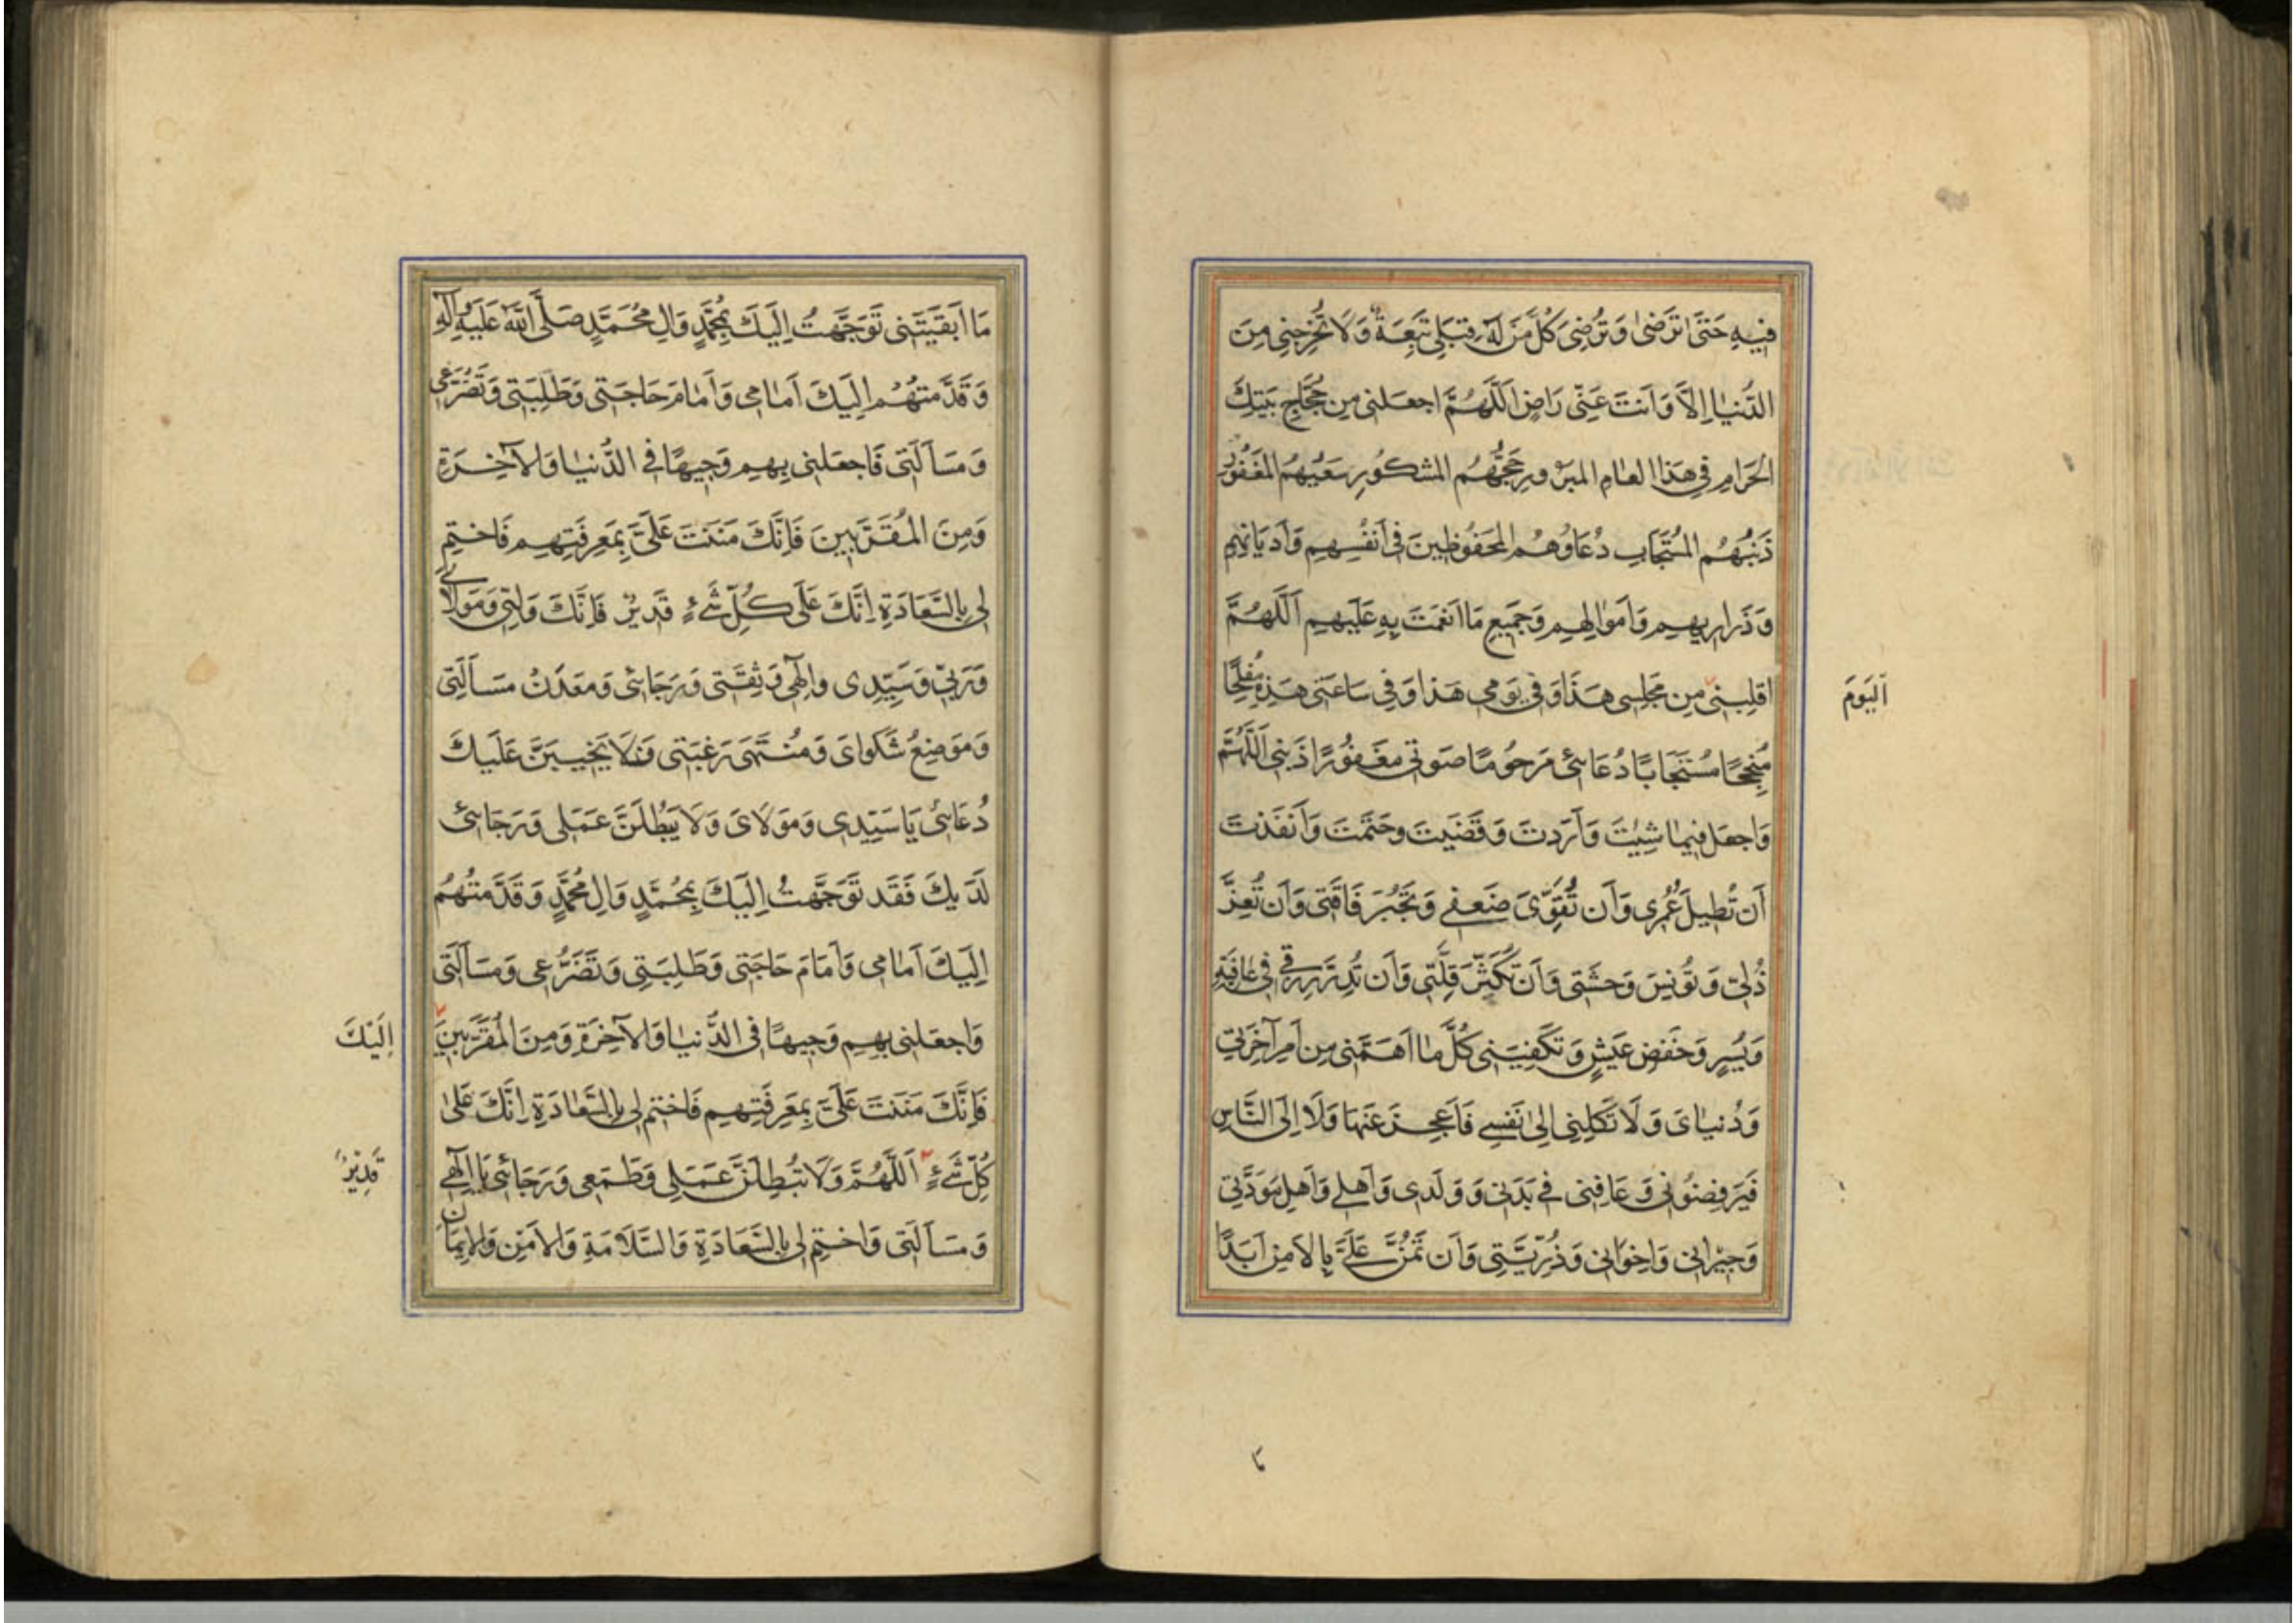 فِيهِ حَتَّىٰ تَرْضىٰ وَتُرْضِىَ كُلَّ مَنْ لَهُ قِبَلِى تَبِعَةٌ وَلَا تُخْرِجْنِى مِنَ
الدُّنْيٰا اِلَّا وَاَنْتَ عَنِّى رَاضٍ اَللّٰهُمَّ اجْعَلْنِى مِنْ حُجَّاجِ بَيْتِكَ
الْحَرَامِ فِى هٰذَا الْعٰامِ الْمَبْرُورِ حَجُّهُمُ الْمَشْكُورِ سَعْيُهُمُ الْمَغْفُورِ
ذَنْبُهُمُ الْمُسْتَجَابِ دُعَاؤُهُمُ الْمَحْفُوظِينَ فِى اَنْفُسِهِمْ وَاَدْيَانِهِمْ
وَذَرَارِيهِمْ وَاَمْوٰالِهِمْ وَجَمِيعِ مَا اَنْعَمْتَ بِهِ عَلَيْهِمْ اَللّٰهُمَّ
اقْلِبْنِى مِنْ مَجْلِسِى هٰذَا وَفِى يَوْمِى هٰذَا وَفِى سَاعَتِى هٰذِهِ مُفْلِحًا
اَلْيَوْمَ
مُنْجِحًا مُسْتَجَابًا دُعَائِى مَرْحُومًا صَوْتِى مَغْفُورًا ذَنْبِى اَللّٰهُمَّ
وَاجْعَلْ فِيمٰا شِئْتَ وَاَرَدْتَ وَقَضَيْتَ وَحَتَمْتَ وَاَنْفَذْتَ
اَنْ تُطِيلَ عُمُرِى وَاَنْ تُقَوِّىَ ضَعْفِى وَتَجْبُرَ فَاقَتِى وَاَنْ تُعِزَّ
ذُلِّى وَتُونِسَ وَحْشَتِى وَاَنْ تُكَثِّرَ قِلَّتِى وَاَنْ تُدِرَّ رِزْقِى فِى عٰافِيَةٍ
وَيُسْرٍ وَخَفْضِ عَيْشٍ وَتَكْفِيَنِى كُلَّ مٰا اَهَمَّنِى مِنْ اَمْرِ آخِرَتِى
وَدُنْيٰاىَ وَلَا تَكِلْنِى اِلىٰ نَفْسِى فَاَعْجِزَ عَنْهَا وَلَا اِلَى النَّاسِ
فَيَرْفِضُونِى وَعَافِنِى فِى بَدَنِى وَوَلَدِى وَاَهْلِى وَاَهْلِ مَوَدَّتِى
وَجِيْرٰانِى وَاِخْوَانِى وَذُرِّيَّتِى وَاَنْ تَمُنَّ عَلَىَّ بِالْاَمْنِ اَبَدًا
مَا
مَا اَبْقَيْتَنِى تَوَجَّهْتُ اِلَيْكَ بِمُحَمَّدٍ وَالِ مُحَمَّدٍ صَلَّى اللّٰهُ عَلَيْهِ وَآلِهِ
وَقَدَّمْتُهُمْ اِلَيْكَ اَمٰامِى وَاَمٰامَ حَاجَتِى وَطَلِبَتِى وَتَضَرُّعِى
وَمَسْاَلَتِى فَاجْعَلْنِى بِهِمْ وَجِيهًا فِى الدُّنْيٰا وَالْاٰخِرَةِ
وَمِنَ الْمُقَرَّبِينَ فَاِنَّكَ مَنَنْتَ عَلَىَّ بِمَعْرِفَتِهِمْ فَاخْتِمْ
لِى بِالسَّعَادَةِ اِنَّكَ عَلَى كُلِّ شَىْءٍ قَدِيرٌ فَاِنَّكَ وَلِيِّى وَمَوْلَائِى
وَرَبِّى وَسَيِّدِى وَاِلٰهِى وَثِقَتِى وَرَجَائِى وَمَعْدَنُ مَسْاَلَتِى
وَمَوْضِعُ شَكْوَاىَ وَمُنْتَهَى رَغْبَتِى فَلَا يَخِيبَنَّ عَلَيْكَ
دُعَائِى يَا سَيِّدِى وَمَوْلَاىَ وَلَا يَبْطُلَنَّ عَمَلِى وَرَجَائِى
لَدَيْكَ فَقَدْ تَوَجَّهْتُ اِلَيْكَ بِمُحَمَّدٍ وَالِ مُحَمَّدٍ وَقَدَّمْتُهُمْ
اِلَيْكَ اَمٰامِى وَاَمَامَ حَاجَتِى وَطَلِبَتِى وَتَضَرُّعِى وَمَسْاَلَتِى
وَاجْعَلْنِى بِهِمْ وَجِيهًا فِى الدُّنْيٰا وَالْاٰخِرَةِ وَمِنَ الْمُقَرَّبِينَ
اِلَيْكَ
فَاِنَّكَ مَنَنْتَ عَلَىَّ بِمَعْرِفَتِهِمْ فَاخْتِمْ لِى بِالسَّعٰادَةِ اِنَّكَ عَلىٰ
كُلِّ شَىْءٍ اَللّٰهُمَّ وَلَا تُبْطِلَنَّ عَمَلِى وَطَمَعِى وَرَجَائِى يَا اِلٰهِى
قَدِيْرٌ
وَمَسْاَلَتِى وَاخْتِمْ لِى بِالسَّعَادَةِ وَالسَّلَامَةِ وَالْاَمْنِ وَالْاِيمَانِ